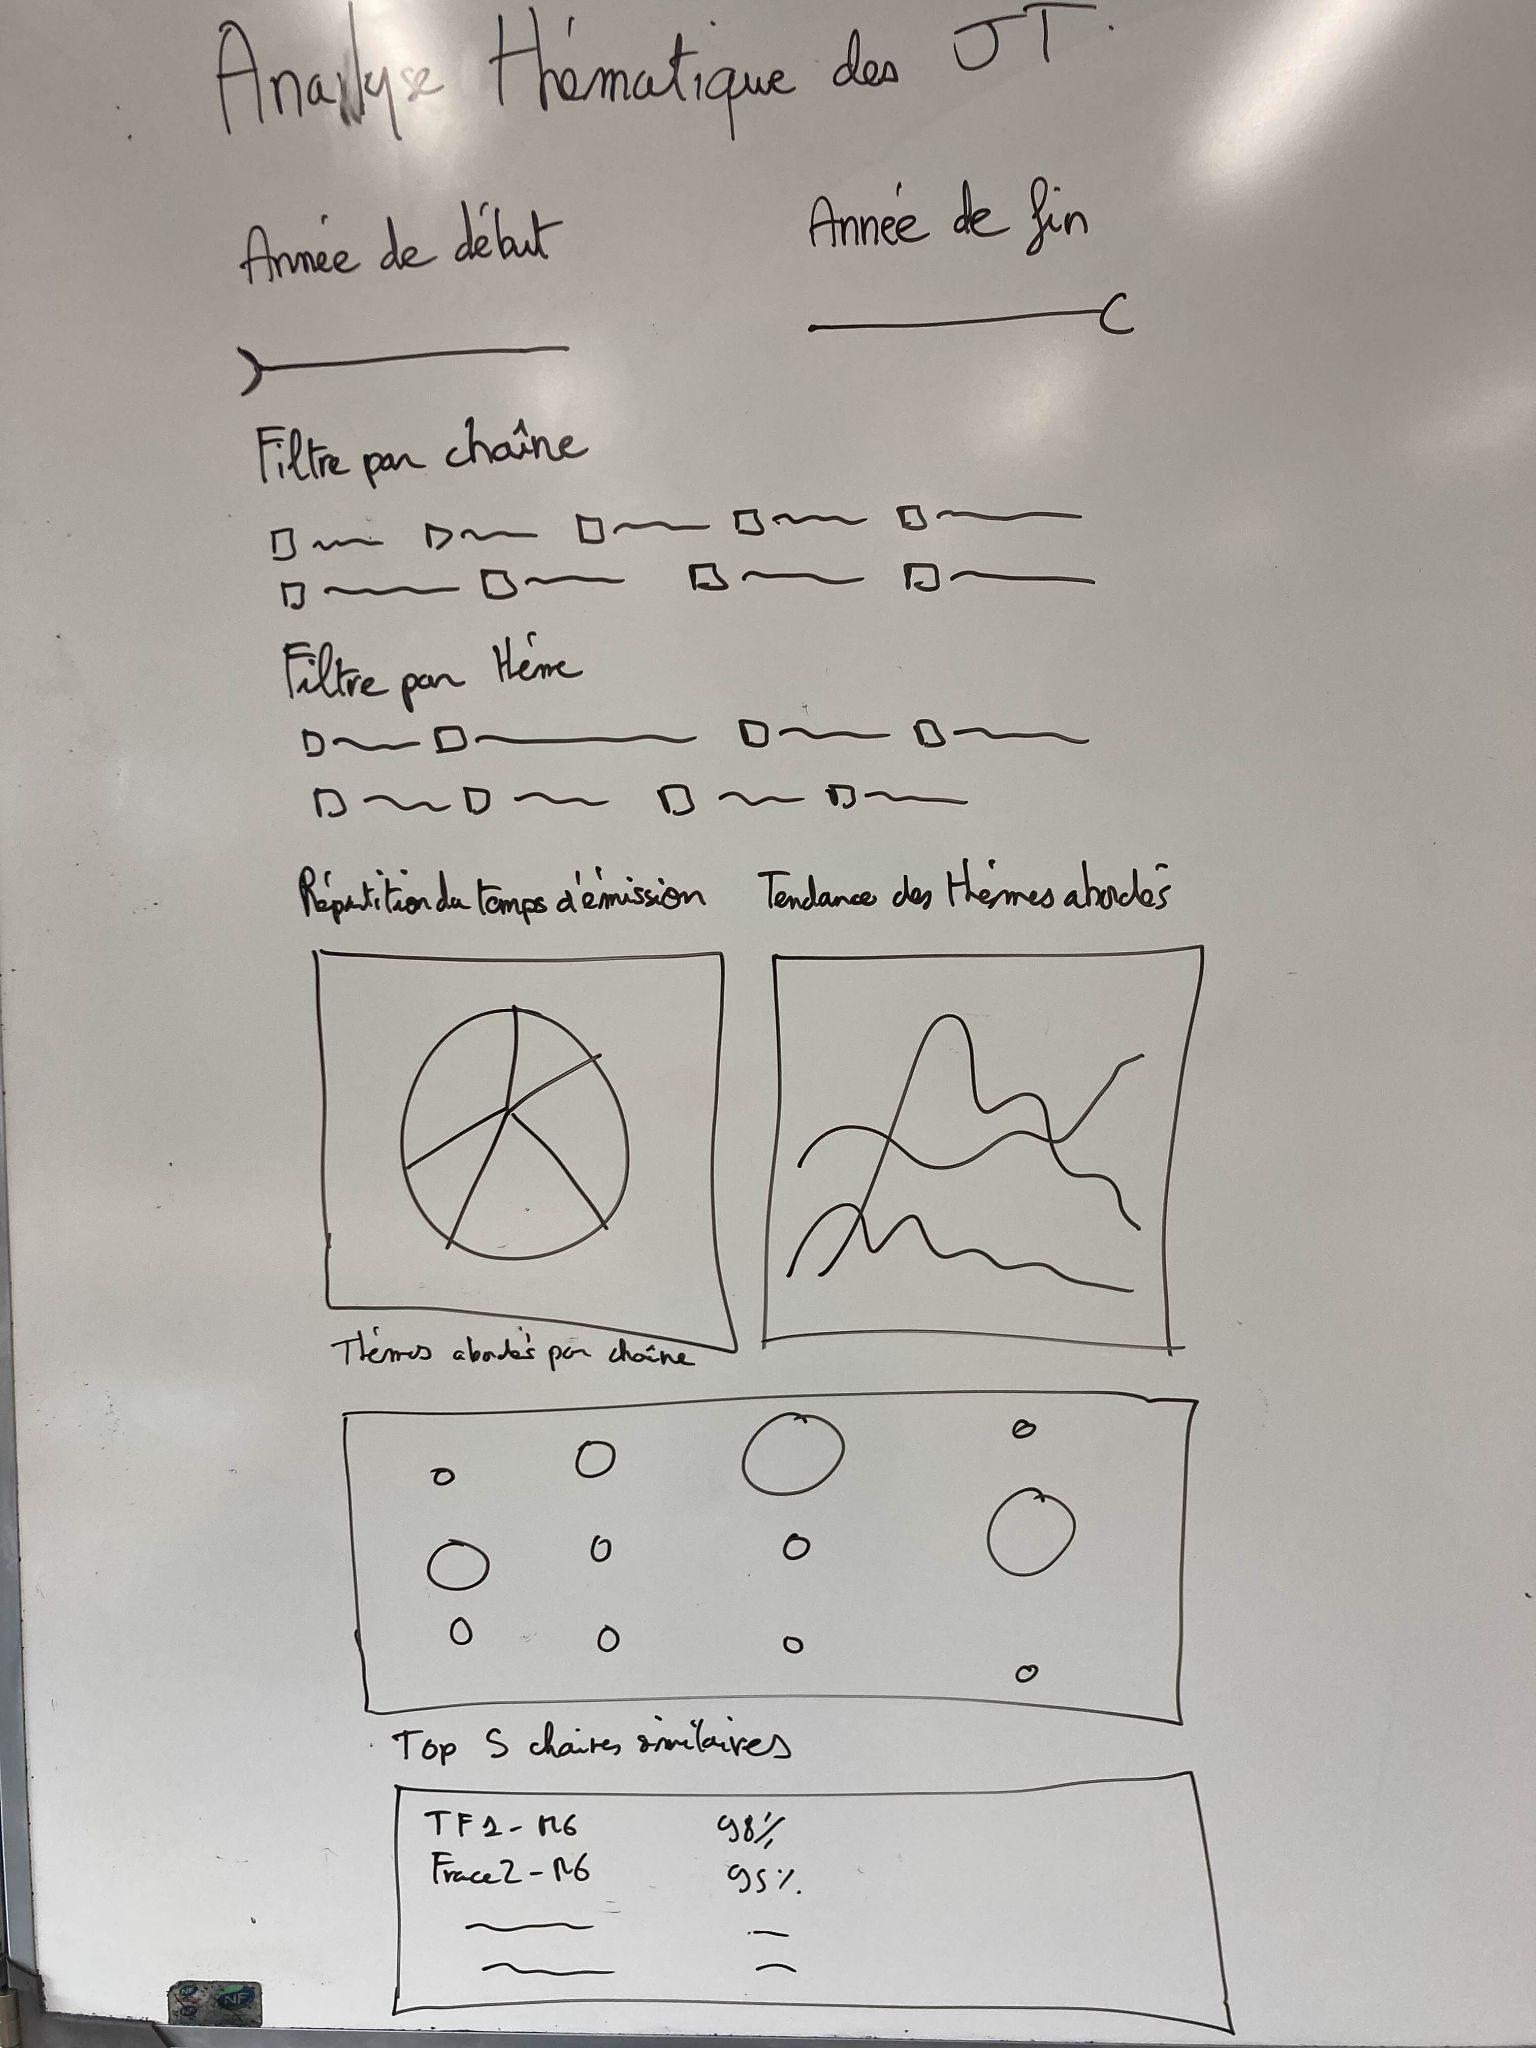 Analyse thématique des JT
Année de début
Année de fin
Filtre par chaîne
Filtre par thème
Répartition du temps d'émission
Tendance des thèmes abordés
Thèmes abordés par chaîne
Top 5 chaines similaires
TF1 - M6 98%
Frace2 - M6 95%
NF
NF
NF